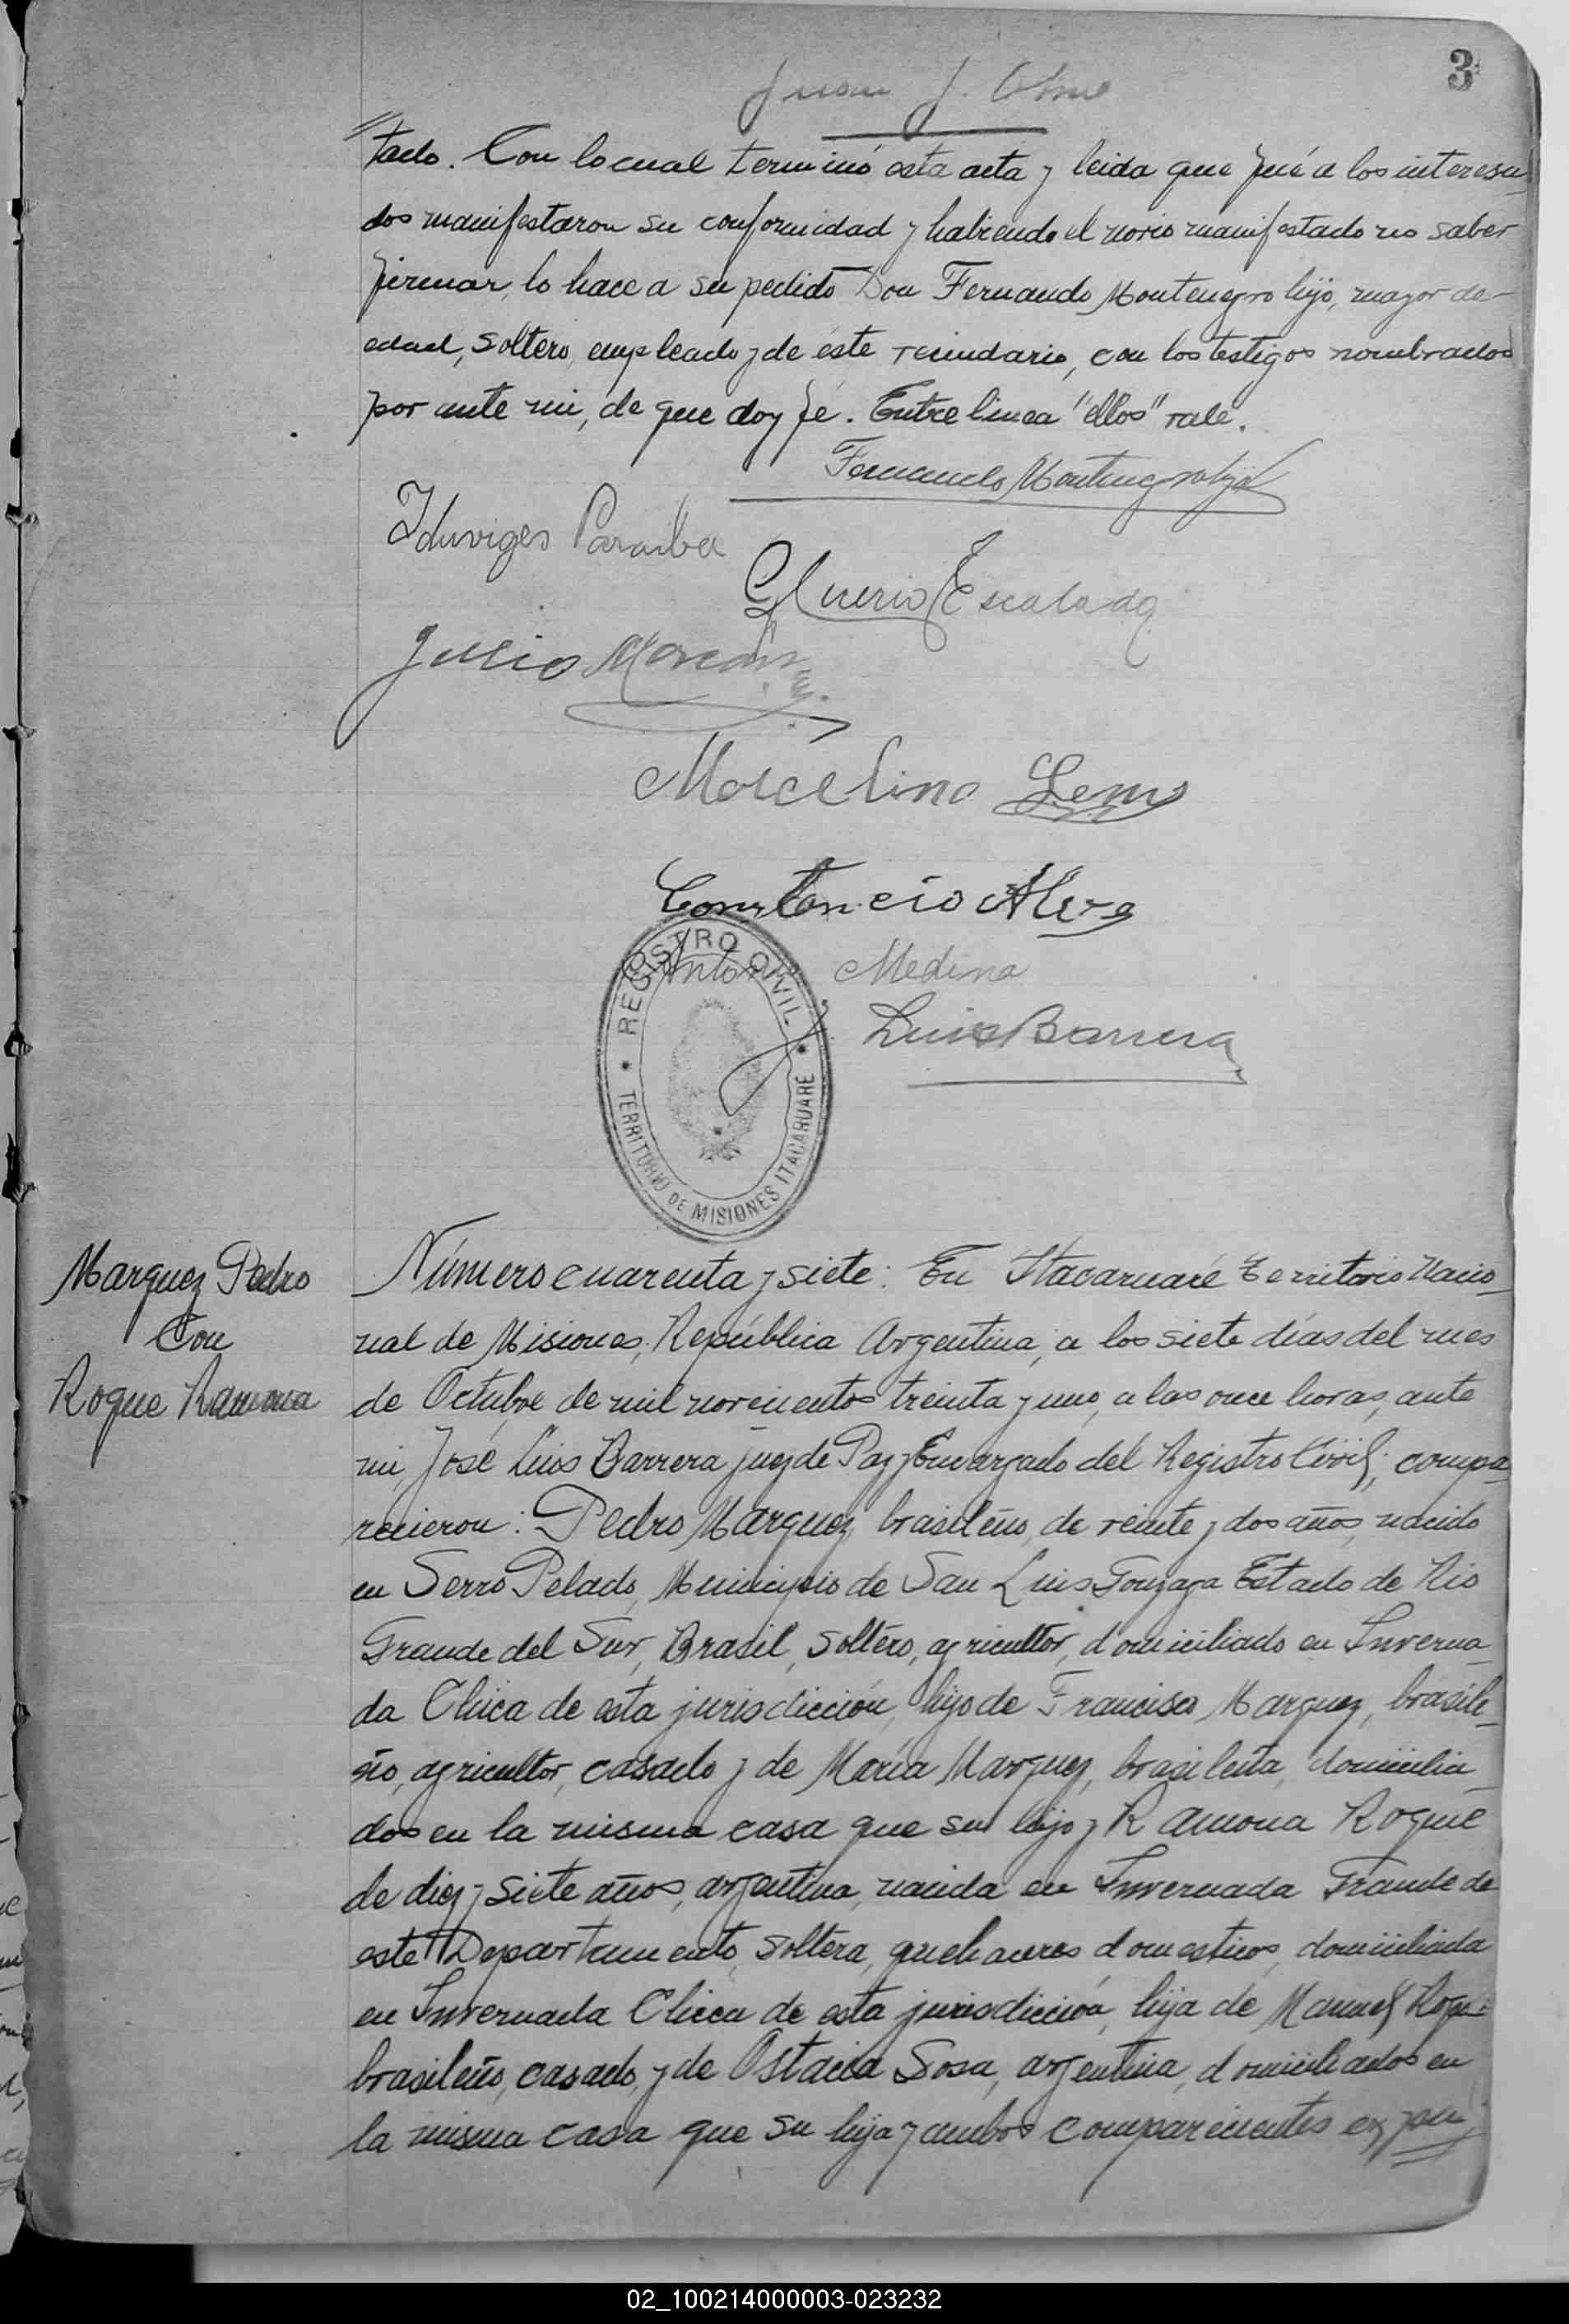 3
Juan J.
tado. Con lo cual terminó esta acta y leida que fué a los interesa-
dos manifestaron su conformidad y habiendo el novio manifestado no saber
firmar, lo hace a su pedido Don Fernando Montenegro hijo, mayor de
edad, soltero, empleado y de éste vecindario, con los testigos nombrados
por ante mi, de que doy fé. Entre linea "ellos" vale.
Fernando Montenegro hijo
Iduviges Paraiba
Escalada
Julio
Marcelino Lems
Constancio Alves
Antonio Medina
Luis Barrera
REGISTRO CIVIL
TERRITORIO DE MISIONES ITACARUARE
Marquez Pedro
Con
Roque Ramona
Número cuarenta y siete: En Itacaruaré Territorio Nacio-
nal de Misiones, República Argentina, a los siete días del mes
de Octubre de mil novecientos treinta y uno, a las once horas, ante
mi, José Luis Barrera Juez de Paz y Encargado del Registro Civil; compa-
recieron: Pedro Marquez, brasileño, de veinte y dos años, nacido
en Serro Pelado, Municipio de San Luis Gonzaga Estado de Rio
Grande del Sur, Brasil, soltero, agricultor, domiciliado en Inverna-
da Chica de esta jurisdicción, hijo de Francisco Marquez, brasile-
ño, agricultor, casado y de María Marquez, brasileña, domicilia-
dos en la misma casa que su hijo y Ramona Roque
de diez y siete años, argentina, nacida en Invernada Grande de
este Departamento, soltera, quehaceres domesticos, domiciliada
en Invernada Chica de esta jurisdicción, hija de Manuel Roque
brasileño, casado, y de Ostacia Sosa, argentina, domiciliados en
la misma casa que su hija y ambos comparecientes expu
02_100214000003-023232